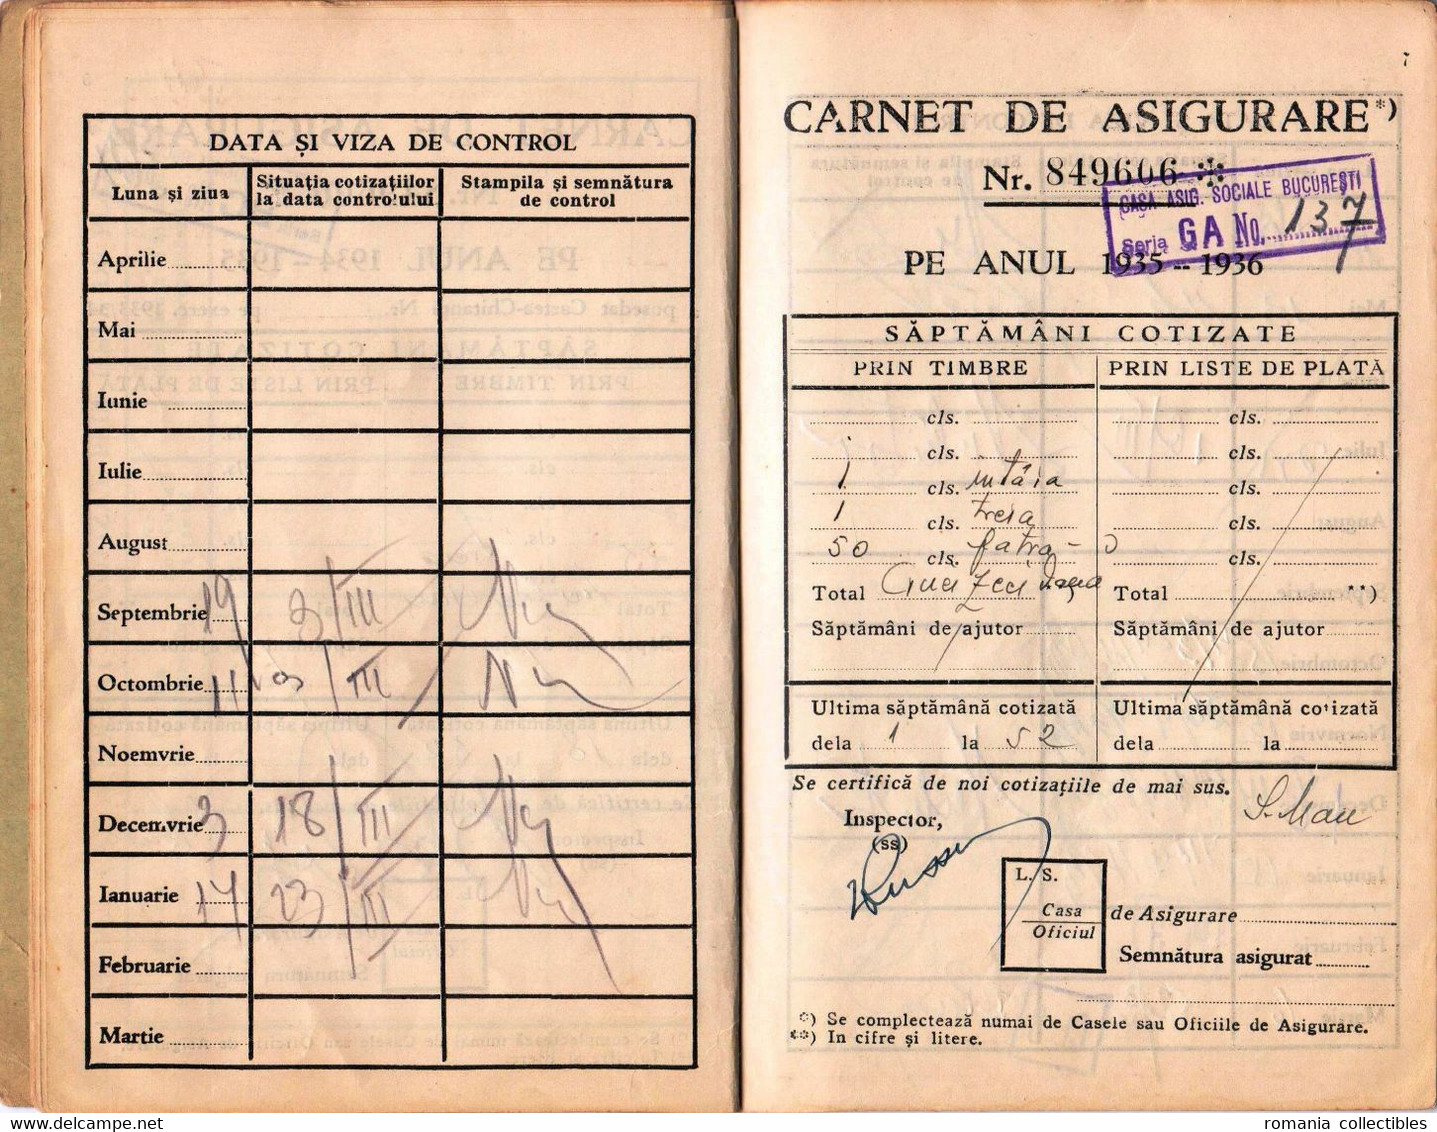 DATA ȘI VIZA DE CONTROL
Luna și ziua
Situația cotizațiilor la data controlului
Stampila și semnătura de control
Aprilie
Mai
Iunie
Iulie
August
Septembrie 19 3/III
Octombrie 11 /III
Noemvrie
Decemvrie 3 18/III
Ianuarie 14 23/III
Februarie
Martie
7
CARNET DE ASIGURARE*)
Nr. 849606 *
CASA ASIG. SOCIALE BUCUREȘTI
Seria GA No. 137
PE ANUL 1935 -- 1936
SĂPTĂMÂNI COTIZATE
PRIN TIMBRE
PRIN LISTE DE PLATĂ
cls. cls.
cls. cls.
1 cls. întâia cls.
1 cls. treia cls.
50 cls. patra cls.
Total Cinci zeci Total **)
Săptămâni de ajutor Săptămâni de ajutor
Ultima săptămână cotizată Ultima săptămână cotizată
dela 1 la 52 dela la
Se certifică de noi cotizațiile de mai sus.
Inspector,
(ss)
L. S.
Casa
Oficiul
de Asigurare
Semnătura asigurat
*) Se complectează numai de Casele sau Oficiile de Asigurare.
**) In cifre și litere.
romania collectibles